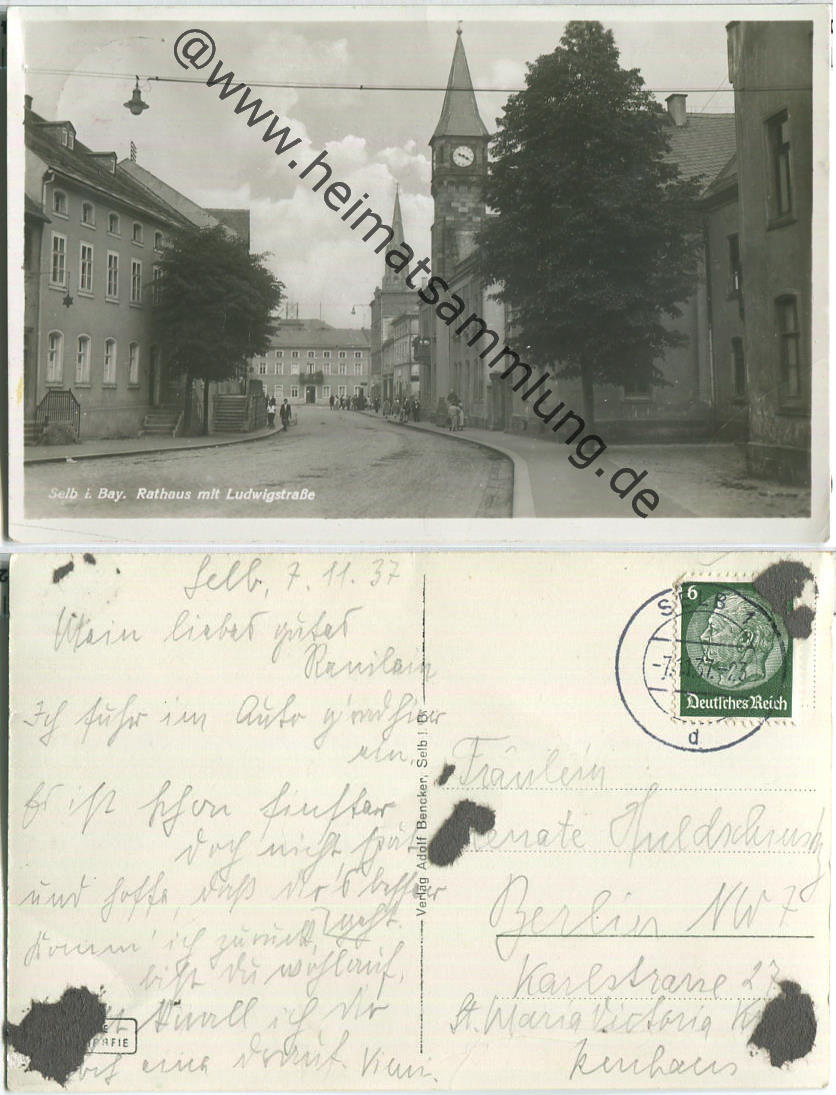 @www.heimatsammlung.de
Selb i. Bay. Rathaus mit Ludwigstraße
Selb, 7.11.37
Mein liebes gutes
Ich fuhr im Auto g'rad hier
ein.
Es ist schon finster
doch nicht spät
und hoffe, daß dir's besser
geht.
Komm' ich zurück,
bist du wohlauf,
Knall ich dir
noch eine drauf.
Verlag Adolf Bencker, Selb i. B.
SELB 1
-7.11.37.-23
d
6
Deutsches Reich
Fräulein
Renate
Berlin NW 7
Karlstrasse 27
St. Maria Victoria
kenhaus